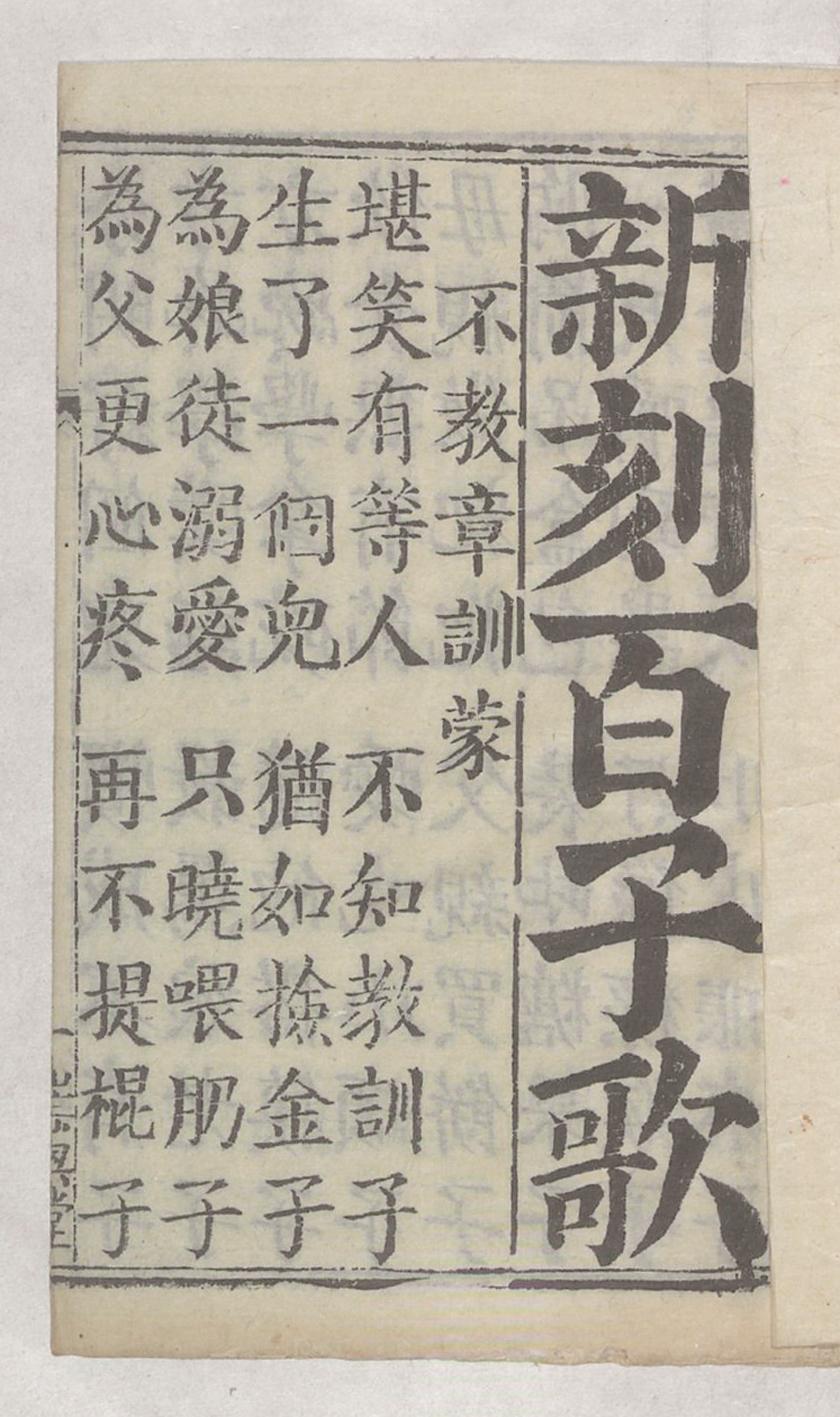 新刻百子歌
不教章訓蒙
堪笑有等人 不知教訓子
生了一個兒 猶如撿金子
為娘徒溺愛 只曉喂肭子
為父更心疼 再不提棍子